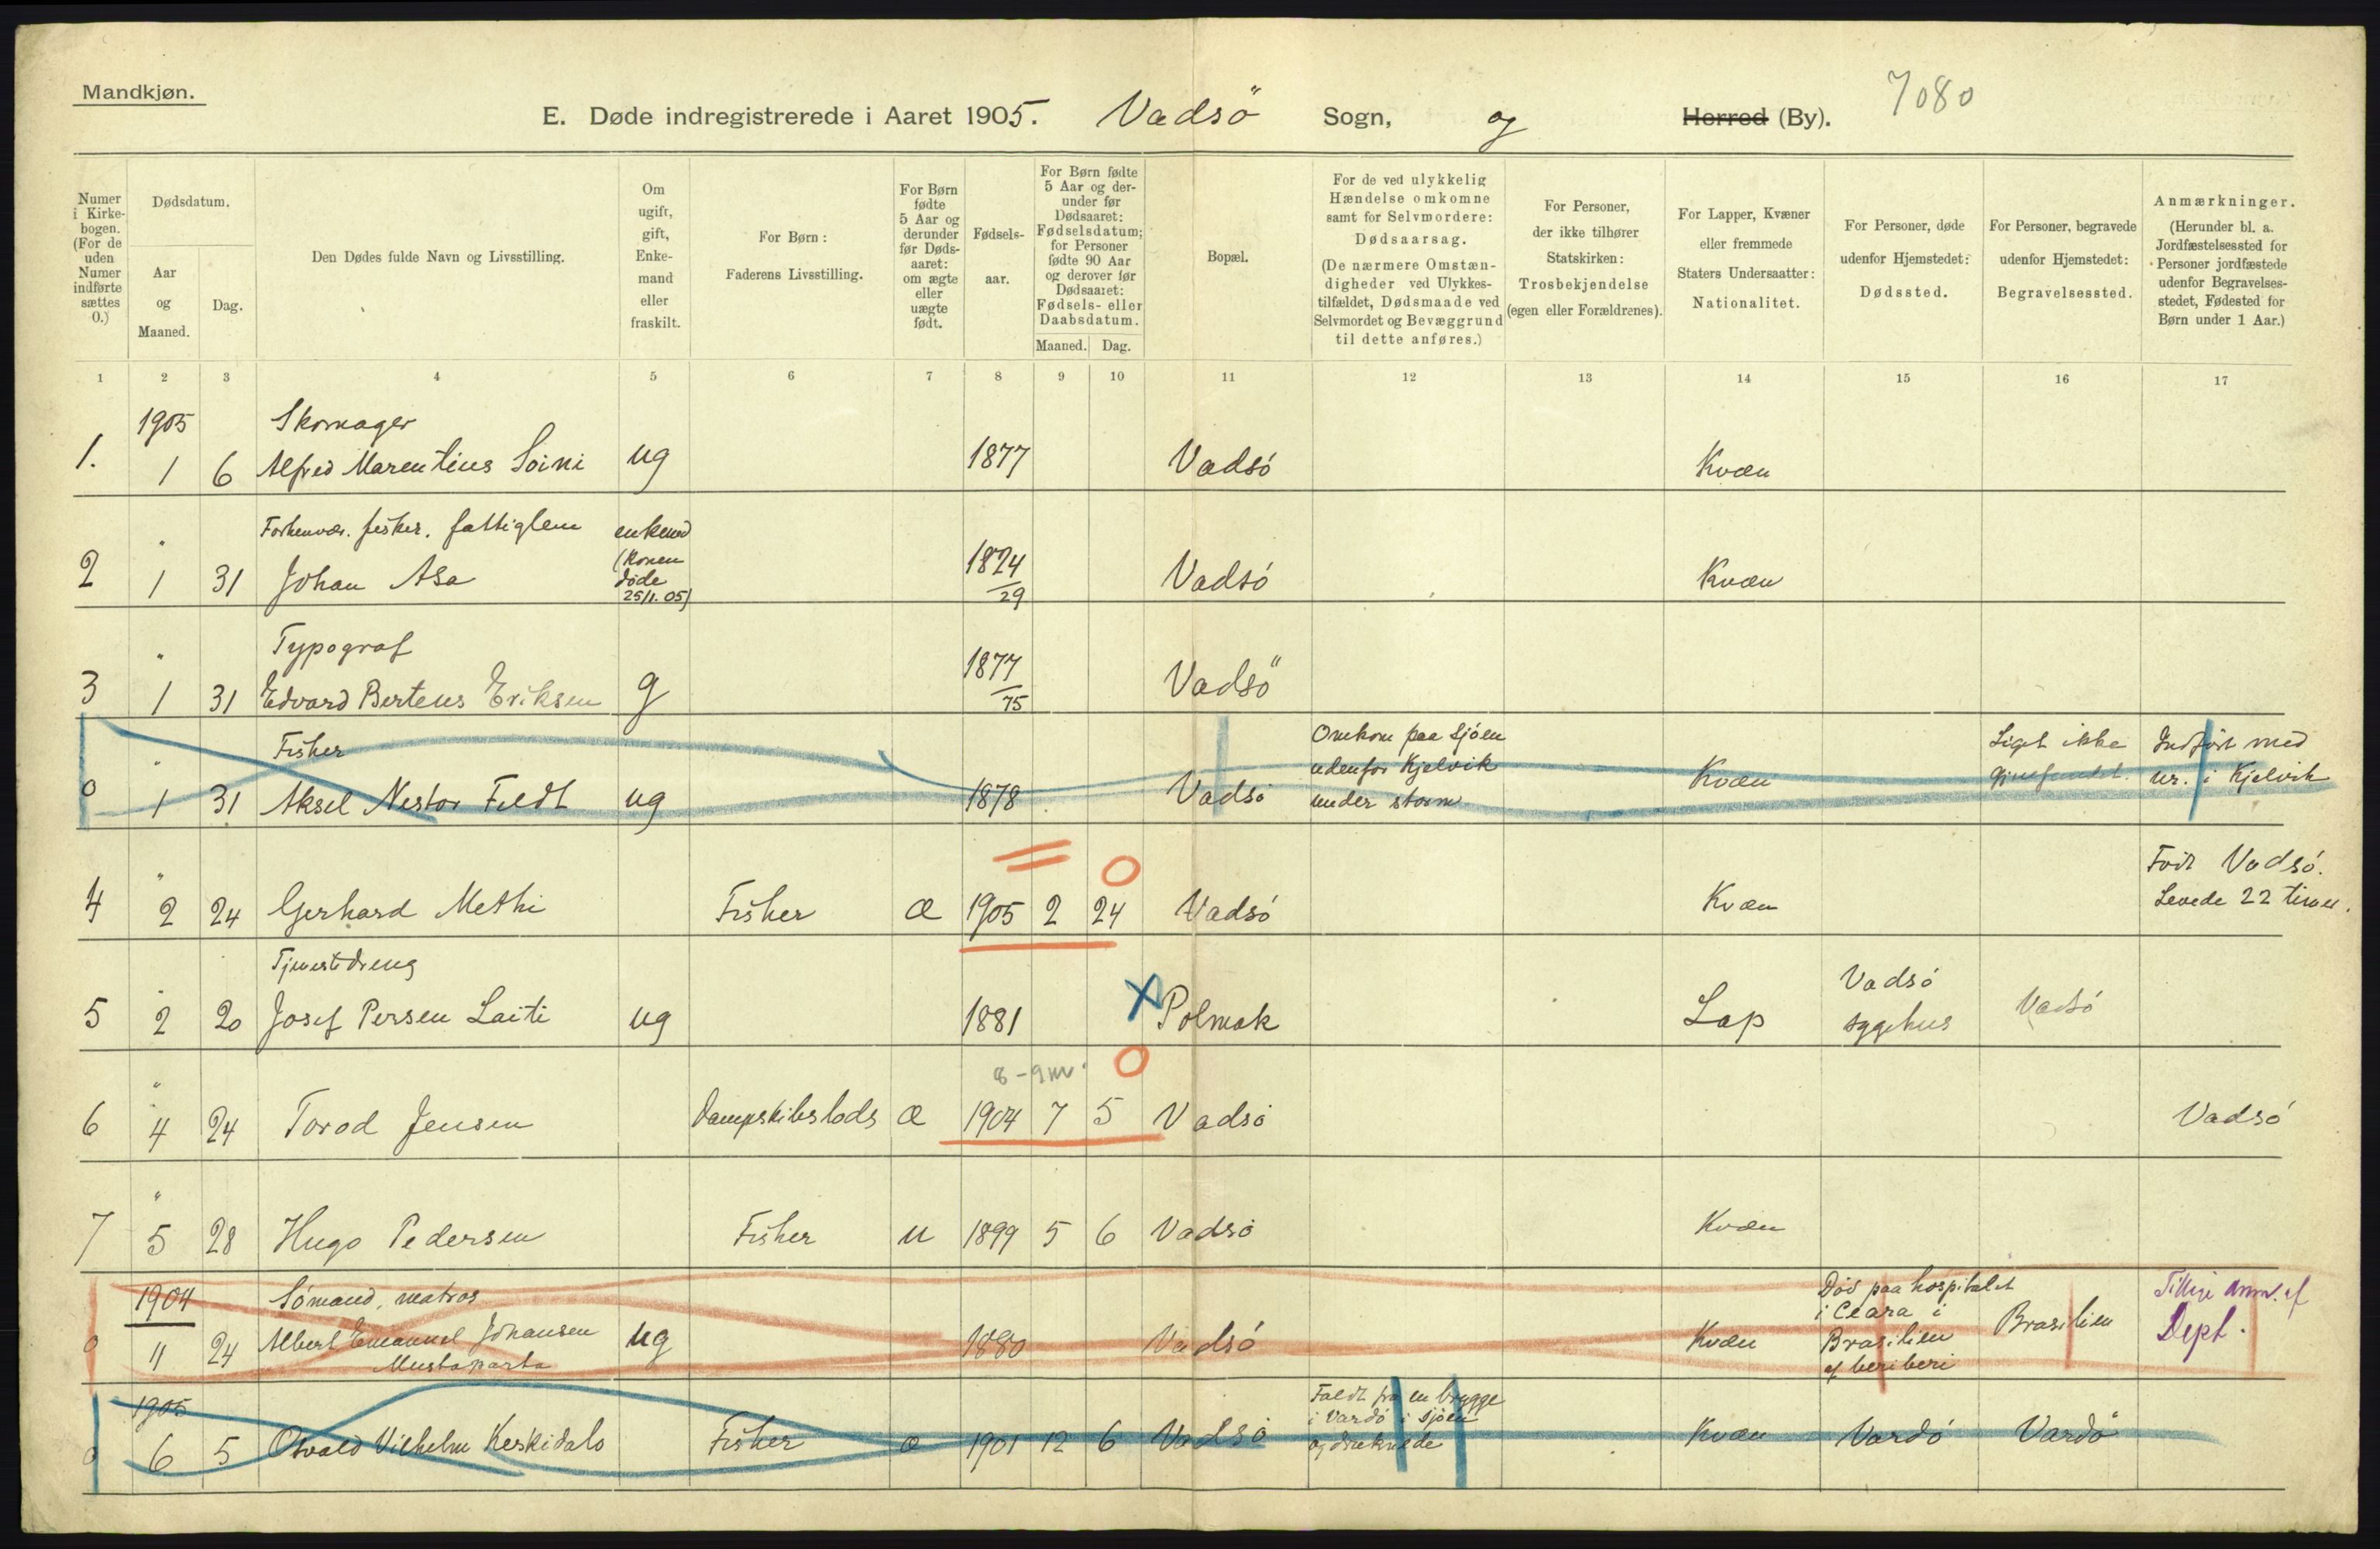 Mandkjøn.
E. Døde indregistrerede i Aaret 1905. Vadsö Sogn, og Herred (By). 7080
Numer i Kirke-bogen. (For de uden Numer indførte sættes 0.)
Dødsdatum.
Aar og Maaned.
Dag.
Den Dødes fulde Navn og Livsstilling.
Om ugift, gift, Enke-mand eller fraskilt.
For Børn: Faderens Livsstilling.
For Børn fødte 5 Aar og derunder før Døds-aaret: om ægte eller uægte født.
Fødsels-aar.
For Børn fødte 5 Aar og der-under før Dødsaaret: Fødselsdatum; for Personer fødte 90 Aar og derover før Dødsaaret: Fødsels- eller Daabsdatum.
Maaned. Dag.
Bopæl.
For de ved ulykkelig Hændelse omkomne samt for Selvmordere: Dødsaarsag. (De nærmere Omstæn-digheder ved Ulykkes-tilfældet, Dødsmaade ved Selvmordet og Bevæggrund til dette anføres.)
For Personer, der ikke tilhører Statskirken: Trosbekjendelse (egen eller Forældrenes).
For Lapper, Kvæner eller fremmede Staters Undersaatter: Nationalitet.
For Personer, døde udenfor Hjemstedet: Dødssted.
For Personer, begravede udenfor Hjemstedet: Begravelsessted.
Anmærkninger. (Herunder bl. a. Jordfæstelsessted for Personer jordfæstede udenfor Begravelses-stedet, Fødested for Børn under 1 Aar.)
1 2 3 4 5 6 7 8 9 10 11 12 13 14 15 16 17
1905 Skomager
1. 1 6 Alfred Marentius Soini ug 1877 Vadsö Kvæn
" Forhenvær. fisker. fattiglem enkemd
(Konen
2 1 31 Johan Asa døde 1824 Vadsö Kvæn
25/1. 05) 29
" Typograf
3 1 31 Edvard Berteus Eriksen g 1877 Vadsö
75
" Fisher Omkom paa sjøen Liget ikke Indført med
udenfor Kjelvik gjenfundet. nr. i Kjelvik
0 1 31 Aksel Nestor Feldt ug 1878 Vadsö under storm Kvæn
" Født Vadsö.
4 2 24 Gerhard Methi Fisher Æ 1905 2 24 Vadsö Kvæn Levede 22 timer.
Tjenestdreng
" Vadsö
5 2 20 Josef Persen Laiti ug 1881 Polmak Lap sygehus Vadsö
8-9 m.
"
6 4 24 Torod Jensen Dampskibslods Æ 1904 7 5 Vadsö Vadsö
"
7 5 28 Hugo Pedersen Fisher u 1899 5 6 Vadsö Kvæn
1904 Sømand, matros Død paa hospitalet
i Ceara i
0 11 24 Albert Emanuel Johansen ug 1880 Vadsö Kvæn Brasilien Brasilien Dept.
Mustaparta af beriberi
1905 Faldt fra en brygge
i Vardö i sjøen
0 6 5 Osvald Vilhelm Keskidalo Fisher æ 1901 12 6 Vadsö og druknede Kvæn Vardö Vardö